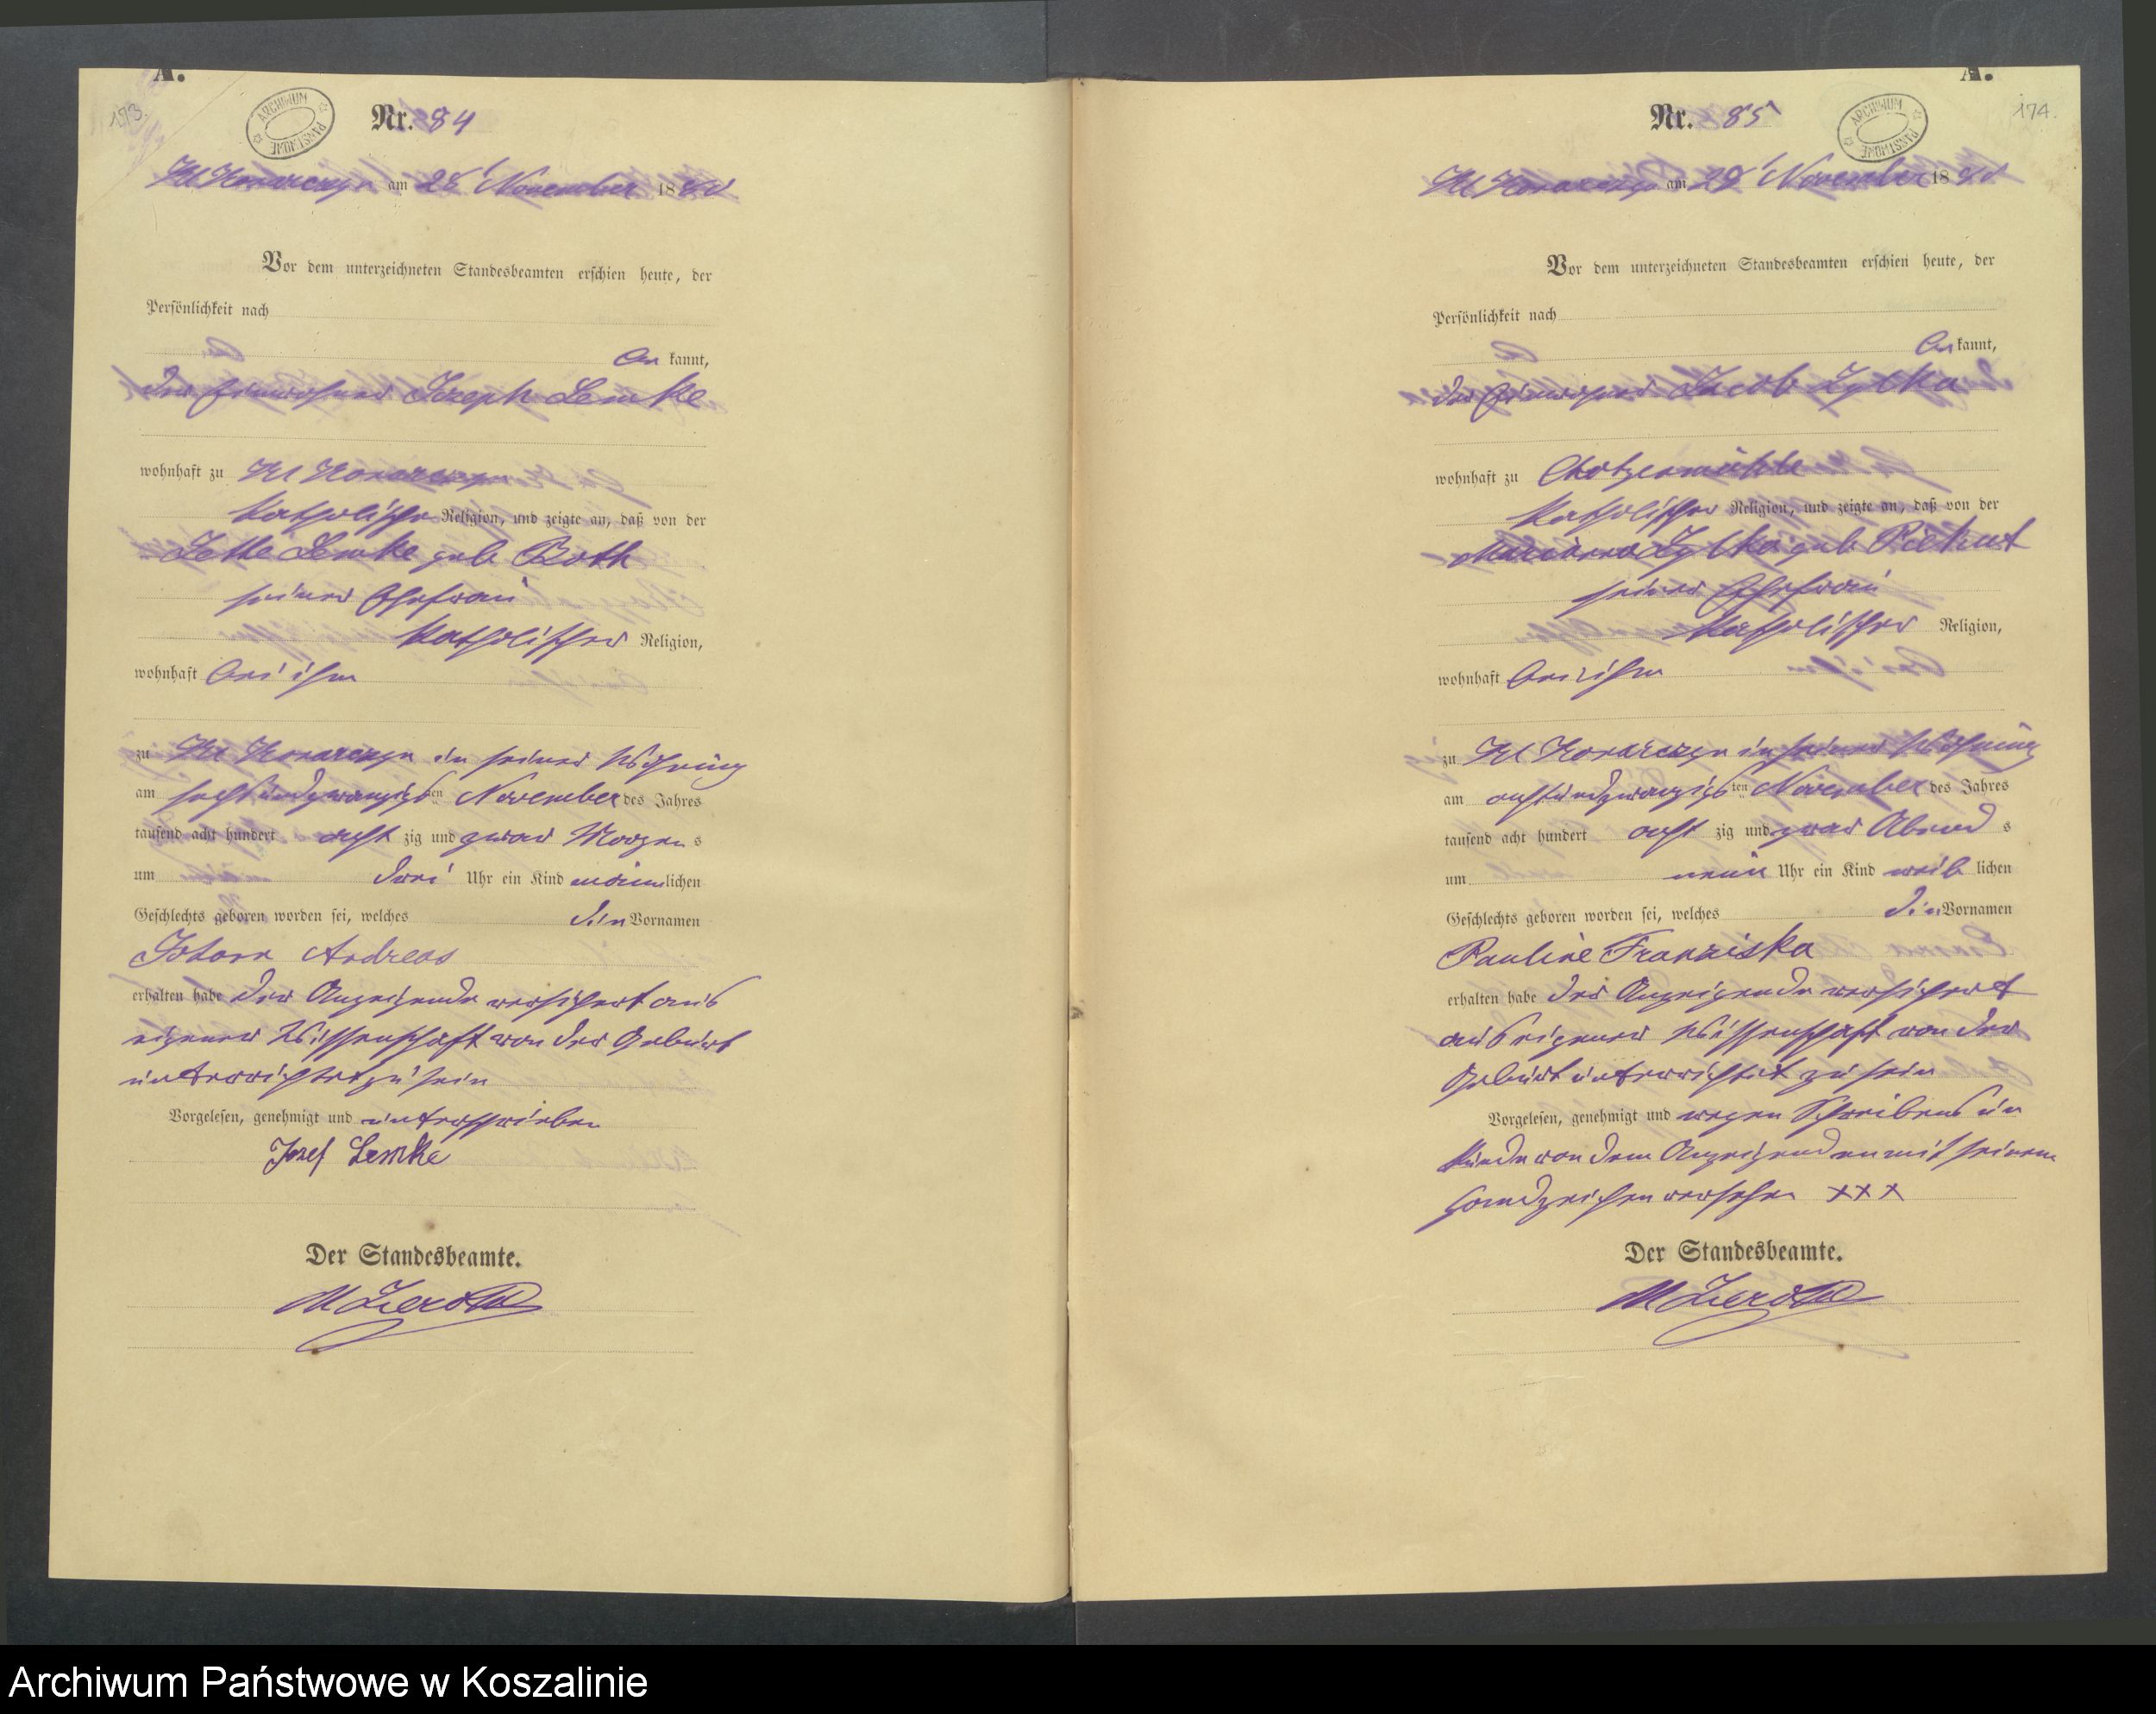 A.
173.
ARCHIWUM PAŃSTWOWE
Nr. 84
Kl Konarczyn am 28 November 1880
Vor dem unterzeichneten Standesbeamten erschien heute, der
Persönlichkeit nach
be kannt,
der Einwohner Joseph Lemke
wohnhaft zu Kl Konarczyn
katholischer Religion, und zeigte an, daß von der
Jette Lemke geb Roth
seiner Ehefrau
katholischer Religion,
wohnhaft bei ihm
zu Kl Konarczyn in seiner Wohnung
am sechsundzwanzigsten November des Jahres
tausend acht hundert acht zig und zwar Morgen s
um drei Uhr ein Kind männlichen
Geschlechts geboren worden sei, welches die Vornamen
Johann Andreas
erhalten habe der Anzeigende versichert aus
eigener Wissenschaft von der Geburt
unterrichtet zu sein
Vorgelesen, genehmigt und unterschrieben
Josef Lemke
Der Standesbeamte.
A.
174.
ARCHIWUM PAŃSTWOWE
Nr. 85
Kl Konarczyn am 29 November 1880
Vor dem unterzeichneten Standesbeamten erschien heute, der
Persönlichkeit nach
be kannt,
der Einwohner Jacob Zylka
wohnhaft zu Chotzenmühle
katholischer Religion, und zeigte an, daß von der
Marianna Zylka geb Piekut
seiner Ehefrau
katholischer Religion,
wohnhaft bei ihm
zu Kl Konarczyn in seiner Wohnung
am achtundzwanzigsten November des Jahres
tausend acht hundert acht zig und zwar Abend s
um neun Uhr ein Kind weib lichen
Geschlechts geboren worden sei, welches die Vornamen
Pauline Franziska
erhalten habe der Anzeigende versichert
aus eigener Wissenschaft von der
Geburt unterrichtet zu sein
Vorgelesen, genehmigt und wegen Schreibens un
kunde von dem Anzeigenden mit seinem
Handzeichen versehen xxx
Der Standesbeamte.
Archiwum Państwowe w Koszalinie